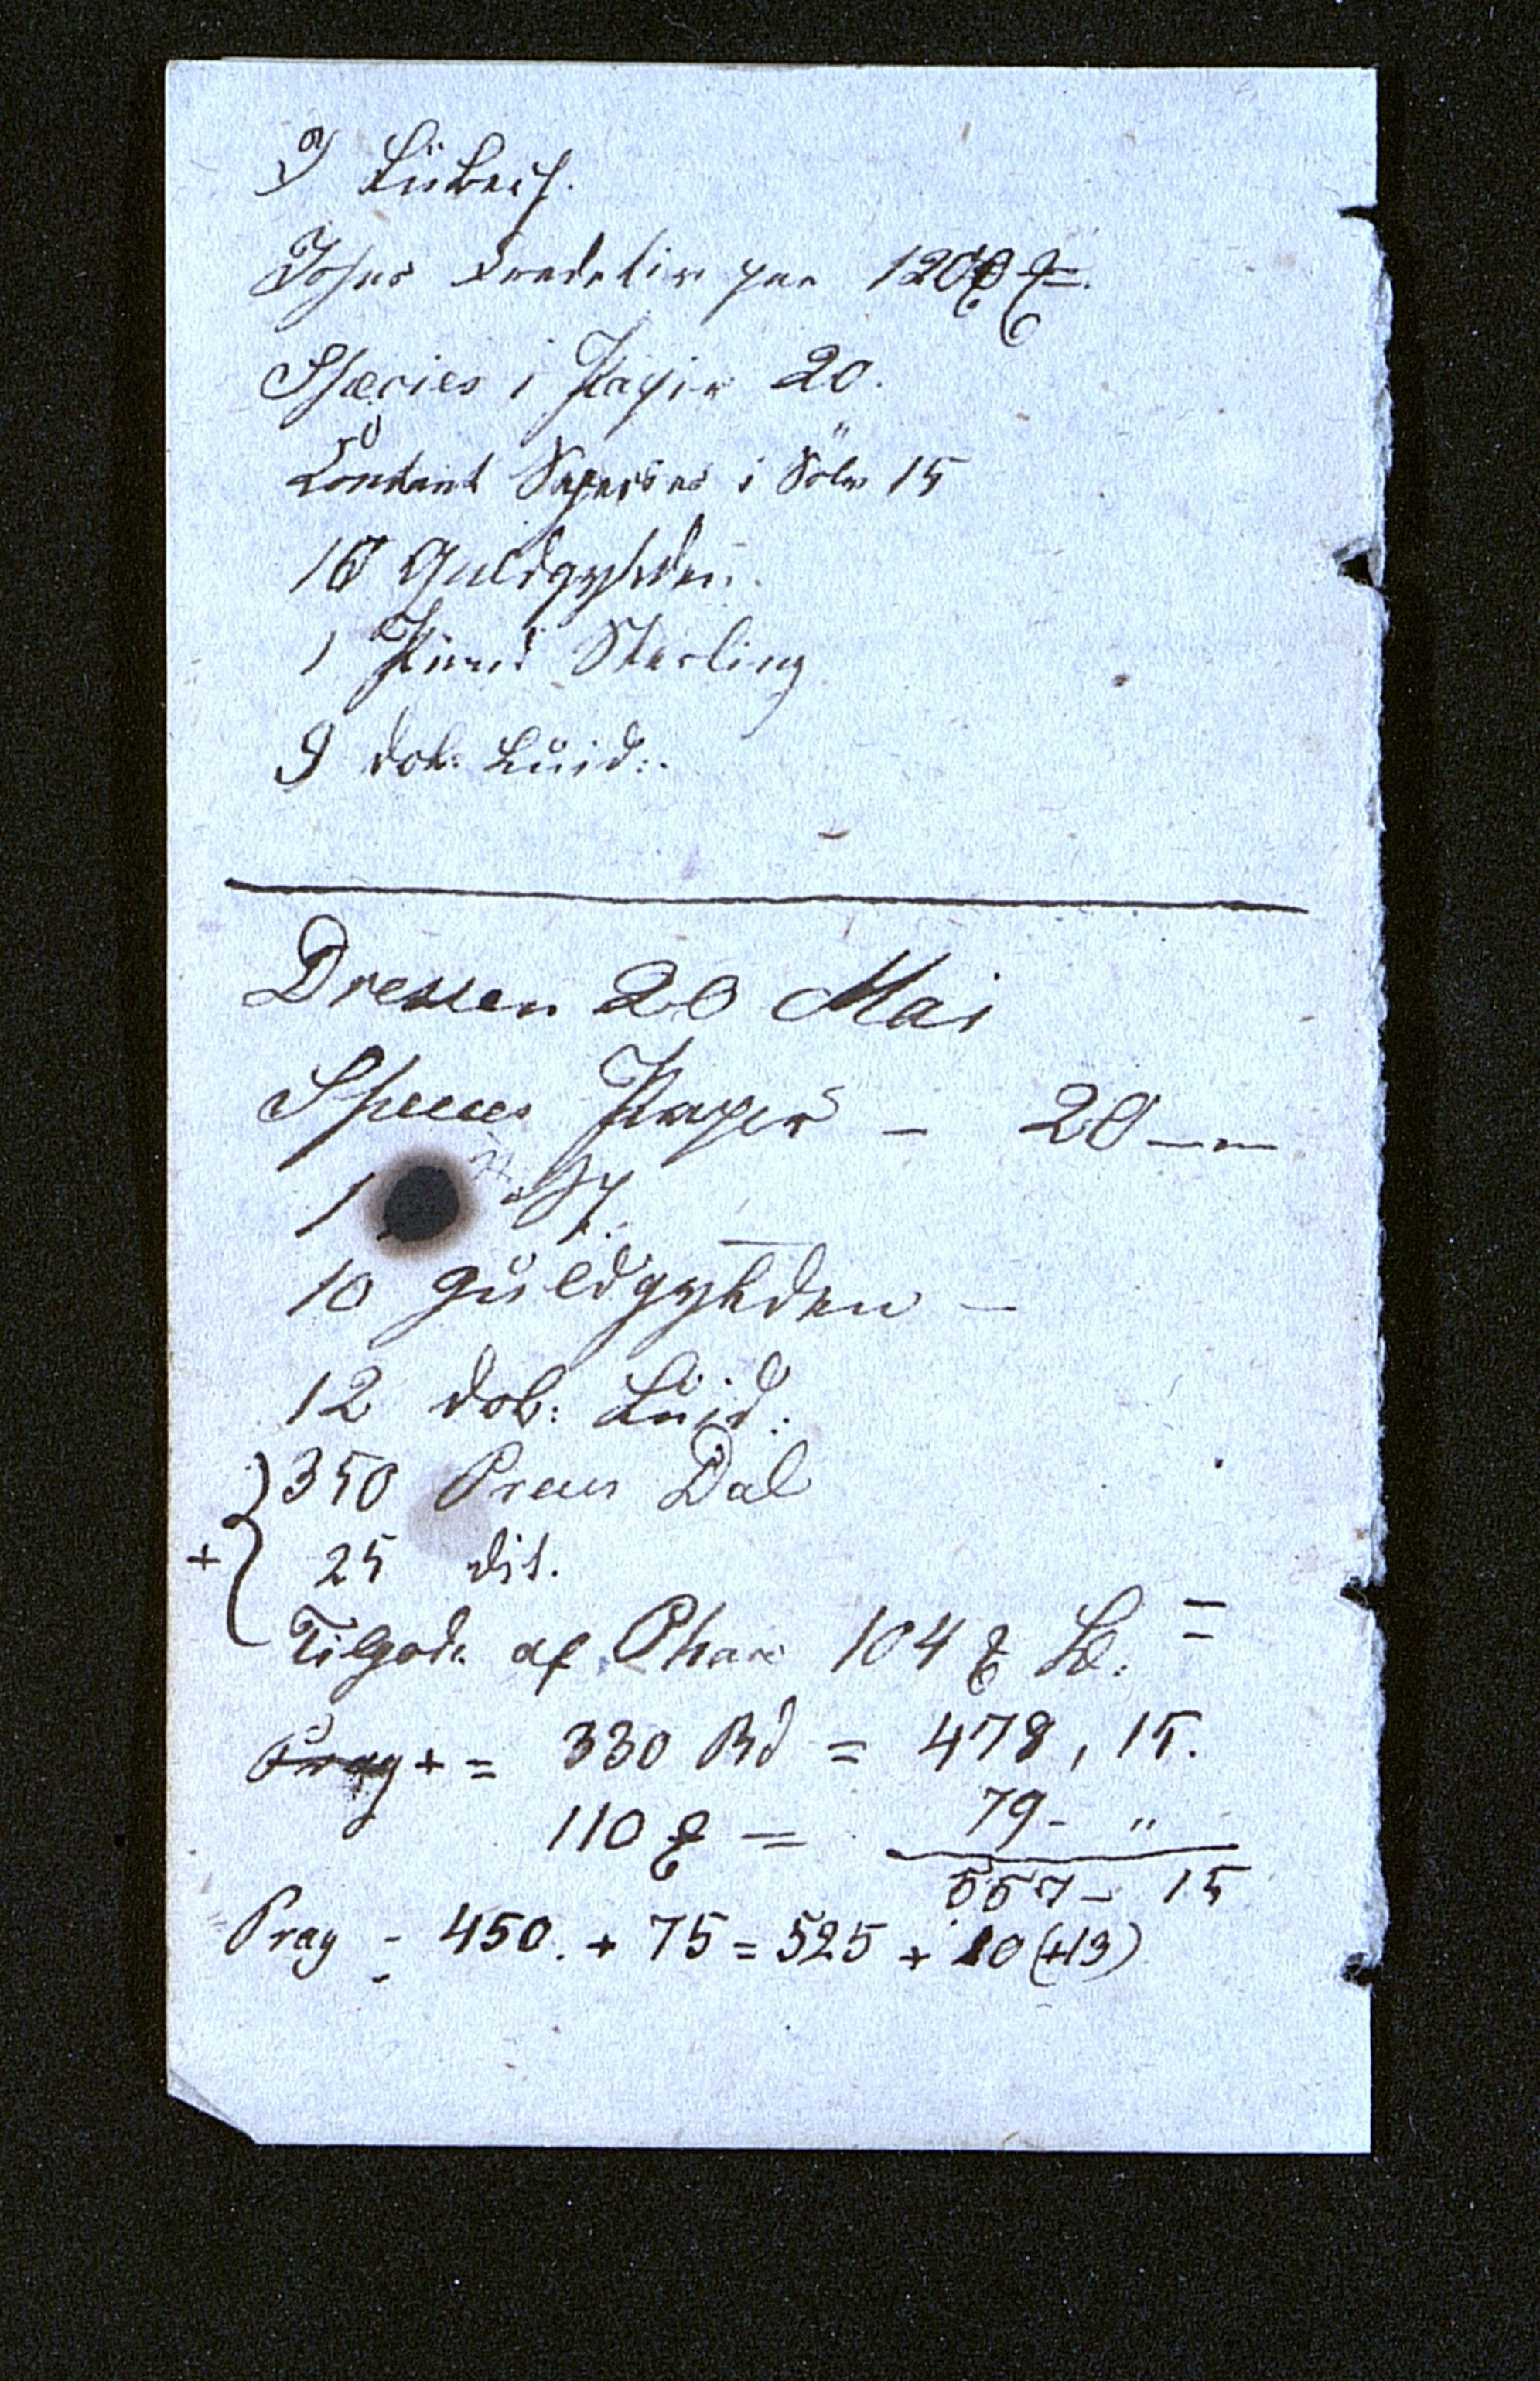 I Lübeck.
Johns Kreditiv paa 1200 ℳ.
Species i Papir 20.
Contant Species i Sölv 15
10 Guldgylden.
1 Pund Sterling
9 dob: Luid:.
Dresden 20 Mai
Species Papir – 20 –
1 Sp.
10 Guldgylden –
12 dob: Luid:
350 Preus Dal
+ { 25 dit.
Tilgode af Phar 104 ℳ =
Prag + = 330 Rd = 478, 15.
110 ℳ = 79 - "
557 - 15
Prag = 450. + 75 = 525 + 20 (+13)